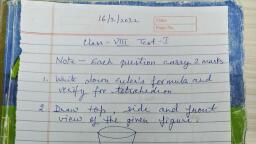 16/2/2022
Date
Page No.
Class - VIII Test - I
Note - Each question carry 2 marks
1. Write down euler's formula and
verify for tetrahedron
2. Draw top, side and front
view of the given figure.